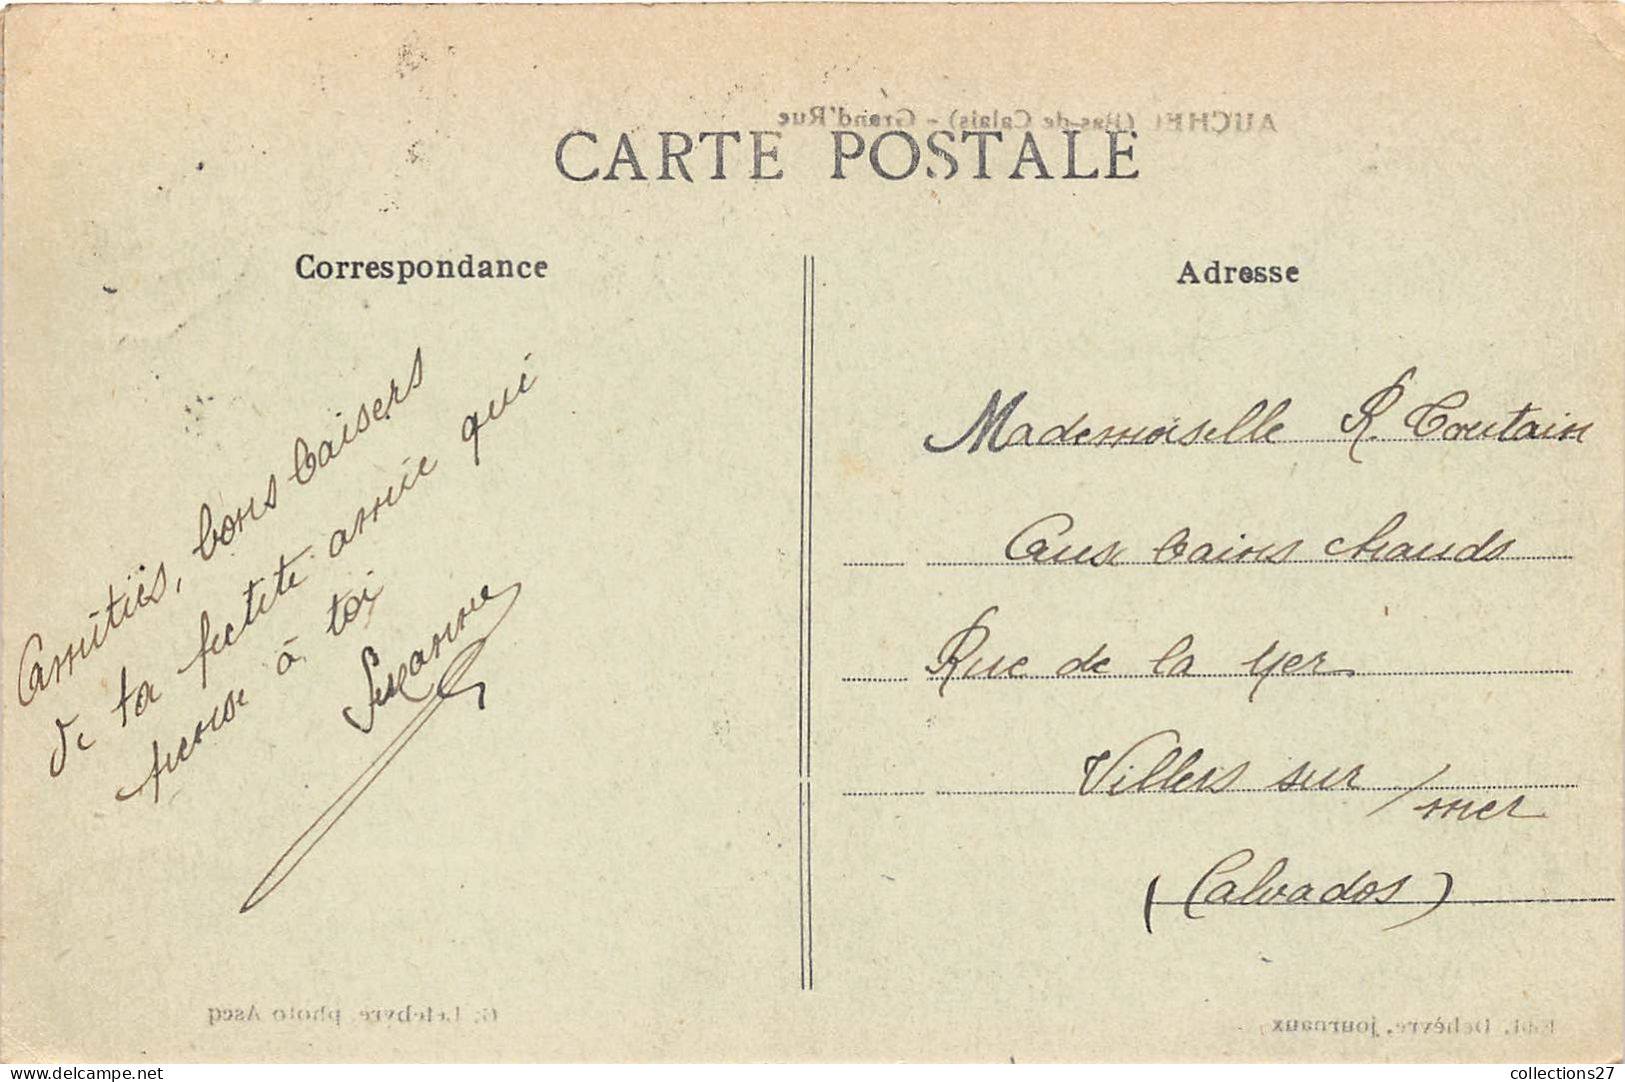 AUCHEL (Pas-de Calais) - Grand'Rue
CARTE POSTALE
Correspondance
Adresse
Amitiés, bons baisers
de ta petite amie qui
pense à toi
Suzanne
Mademoiselle R. Coutain
Aux bains chauds
Rue de la Mer
Villers sur / mer
(Calvados)
G. Lefebvre, photo Ascq
Edit. Dehèvre, journaux
delcampe.net
collections27